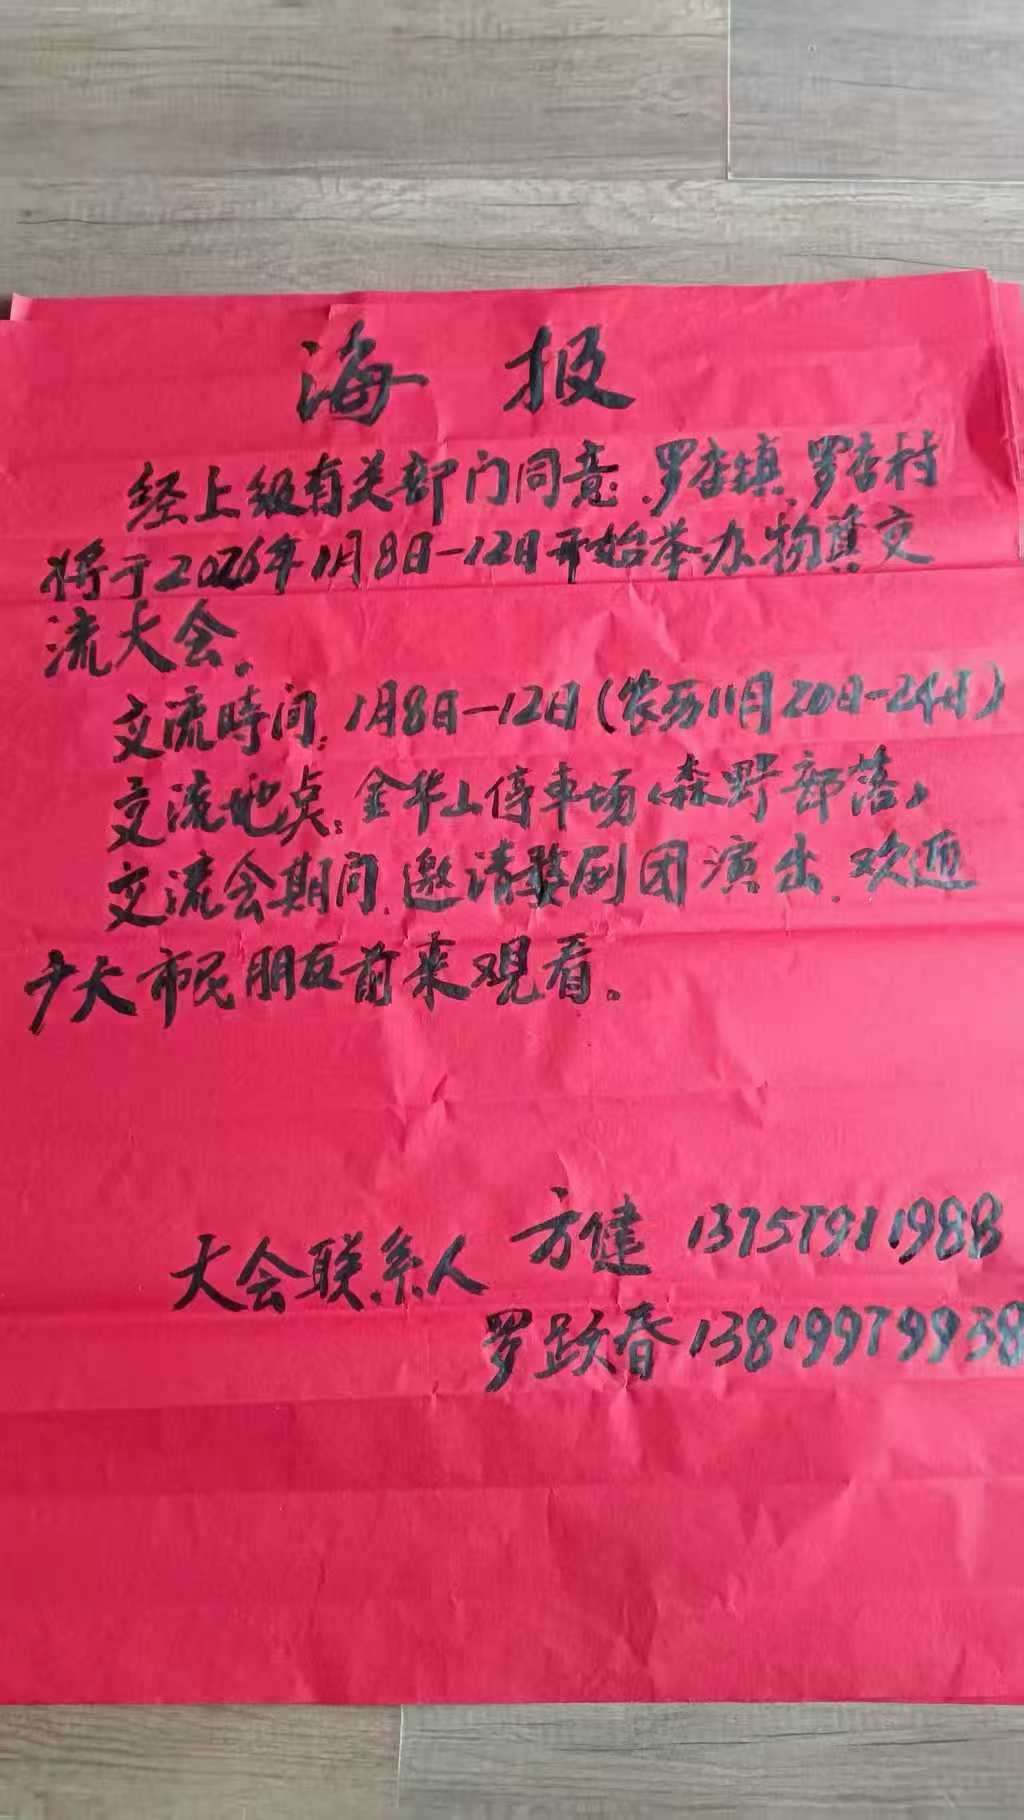 海报
经上级有关部门同意.罗店镇.罗店村
将于2026年1月8日-12日开始举办物资交
流大会。
交流時间:1月8日-12日(农历11月20日-24日)
交流地点:金华山停車场《森野部落》
交流会期间.邀请婺剧团演出.欢迎
广大市民朋友前来观看。
大会联系人 方健 13757911988
罗跃春 13819979938